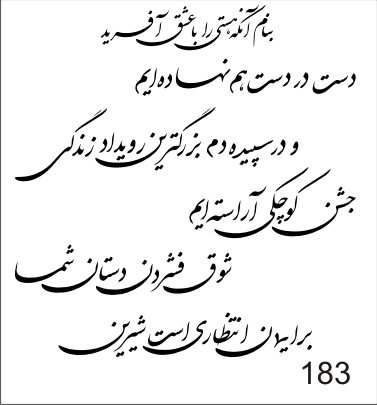 بنام آنکه هستی را با عشق آفرید
دست در دست هم نهاده ایم
و در سپیده دم بزرگترین رویداد زندگی
جشن کوچکی آراسته ایم
شوق فشردن دستان شما
برایمان انتظاری است شیرین
183